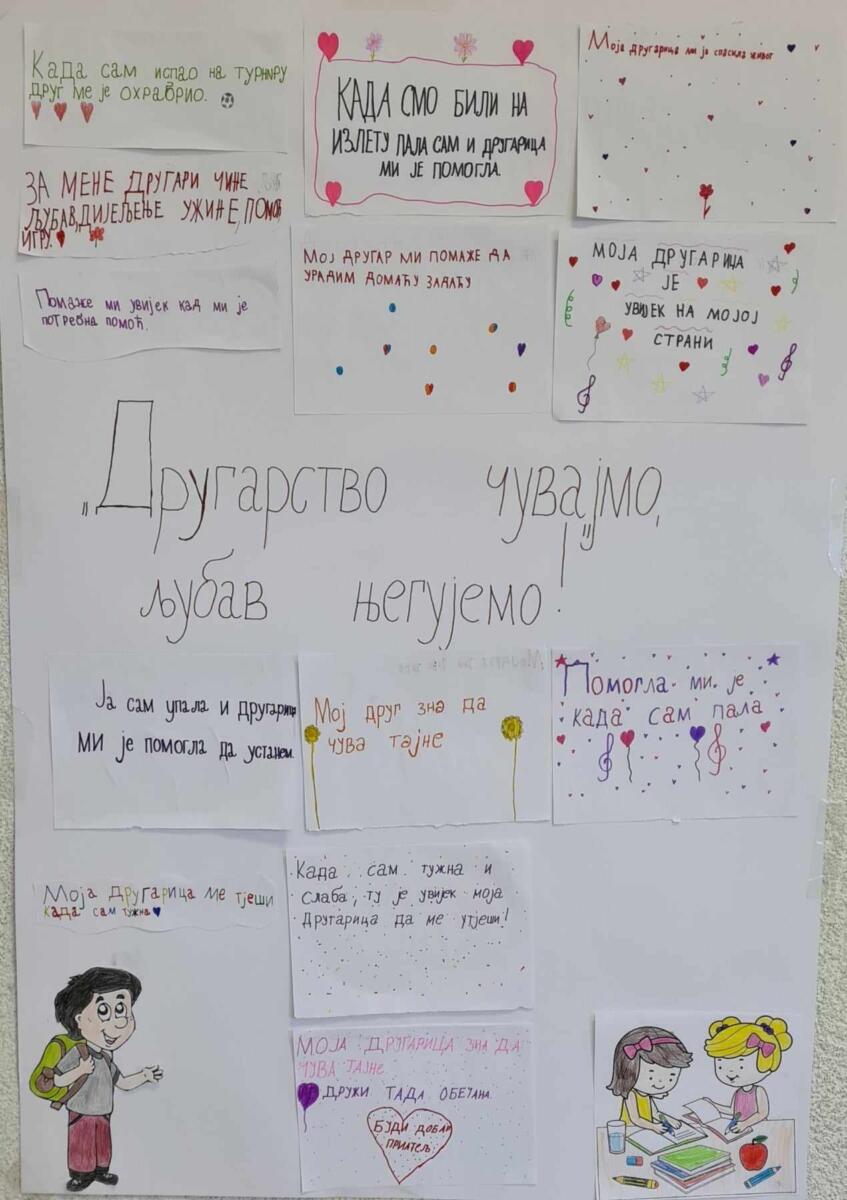 Када сам испао на турниру
друг ме је охрабрио.
КАДА СМО БИЛИ НА
ИЗЛЕТУ ПАЛА САМ И ДРУГАРИЦА
МИ ЈЕ ПОМОГЛА.
Моја другарица ми је спасила живот
ЗА МЕНЕ ДРУГАРИ ЧИНЕ
ЉУБАВ, ДИЈЕЉЕЊЕ УЖИНЕ, ПОМОЋ
ИГРУ.
МОЈ ДРУГАР МИ ПОМАЖЕ ДА
УРАДИМ ДОМАЋУ ЗАДАЋУ
МОЈА ДРУГАРИЦА
ЈЕ
УВИЈЕК НА МОЈОЈ
СТРАНИ
Помаже ми увијек кад ми је
потребна помоћ.
„Другарство чувајмо,
љубав његујемо!"
Ја сам упала и другарица
МИ је помогла да устанем.
Мој друг зна да
чува тајне
Помогла ми је
када сам пала
Моја другарица ме тјеши
када сам тужна
Када сам тужна и
слаба, ту је увијек моја
Другарица да ме утјеши!
МОЈА ДРУГАРИЦА ЗНА ДА
ЧУВА ТАЈНЕ
ДРУЖИ ТАДА ОБЕЋАНА
БУДИ ДОБАР
ПРИАТЕЉ